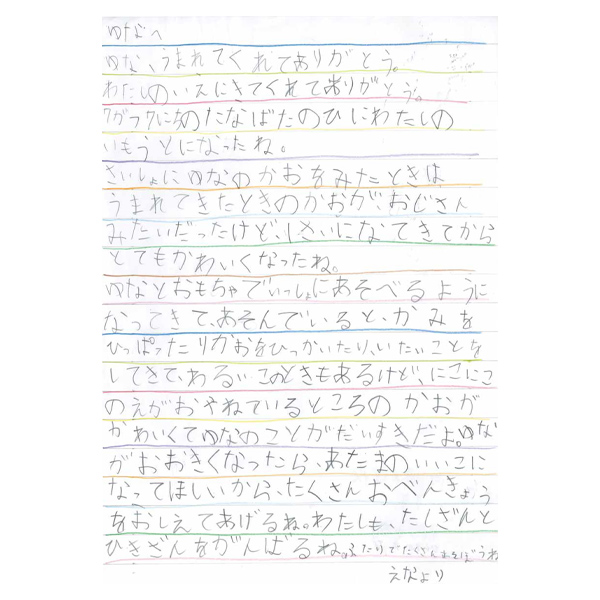 ゆなへ
ゆな、うまれてくれてありがとう。
わたしのいえにきてくれてありがとう。
7がつ7にちのたなばたのひにわたしの
いもうとになったね。
さいしょにゆなのかおをみたときは
うまれてきたときのかおがおじさん
みたいだったけど、1さいになてきてから
とてもかわいくなったね。
ゆなとおもちゃでいっしょにあそべるように
なってきて、あそんでいると、かみを
ひっぱったりかおをひっかいたり、いたいことを
してきて、わるいこのときもあるけど、にこにこ
のえがおやねているところのかおが
かわいくてゆなのことがだいすきだよ。ゆな
がおおきくなったら、あたまのいいこに
なってほしいから、たくさんおべんきょう
をおしえてあげるね。わたしも、たしざんと
ひきざんをがんばるね。ふたりでたくさんあそぼうね
えなより